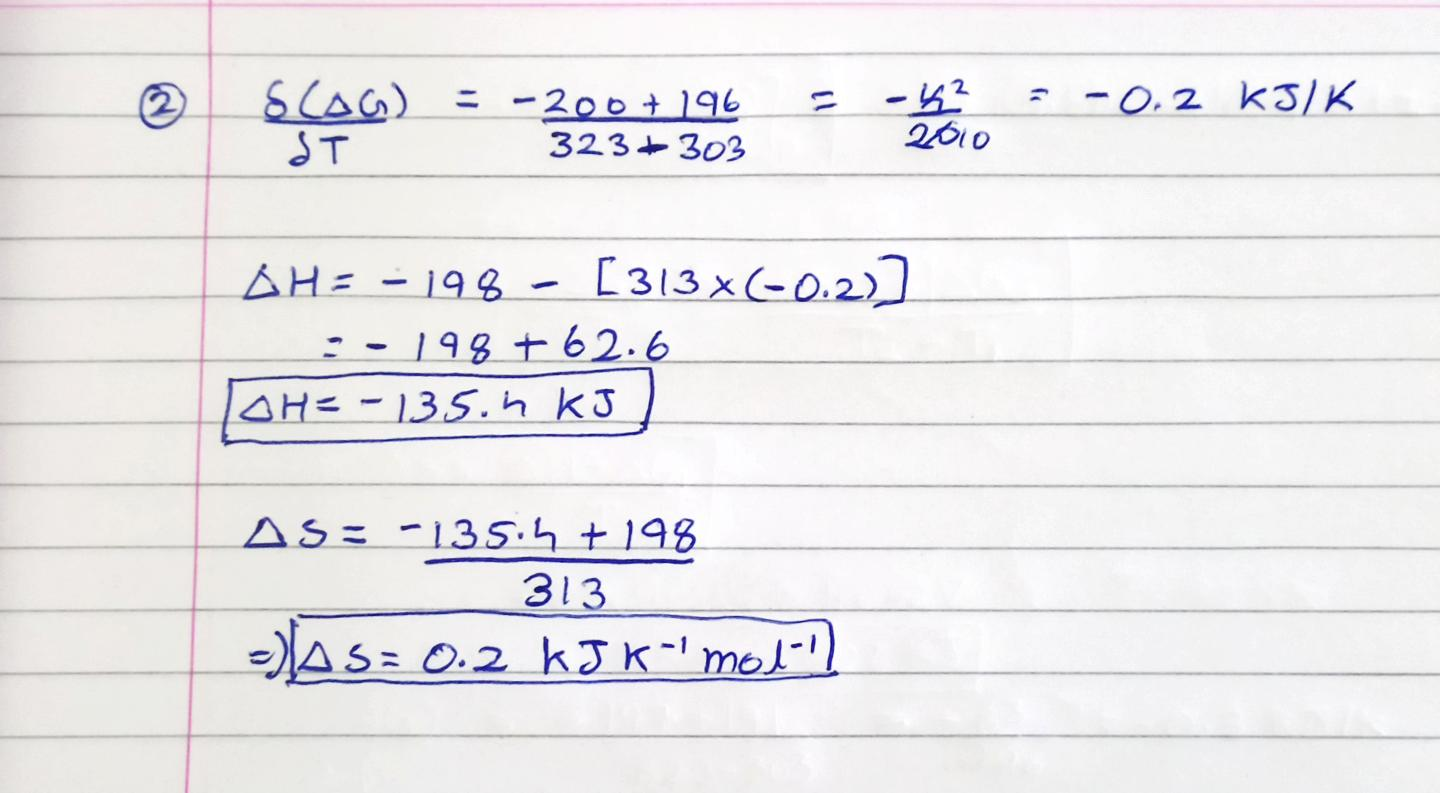 ② δ(ΔG)/δT = -200 + 196/323 - 303 = -4 2/20 10 = -0.2 kJ/K
ΔH = -198 - [313 x (-0.2)]
= -198 + 62.6
ΔH = -135.4 kJ
ΔS = -135.4 + 198/313
=) ΔS = 0.2 kJ K⁻¹ mol⁻¹